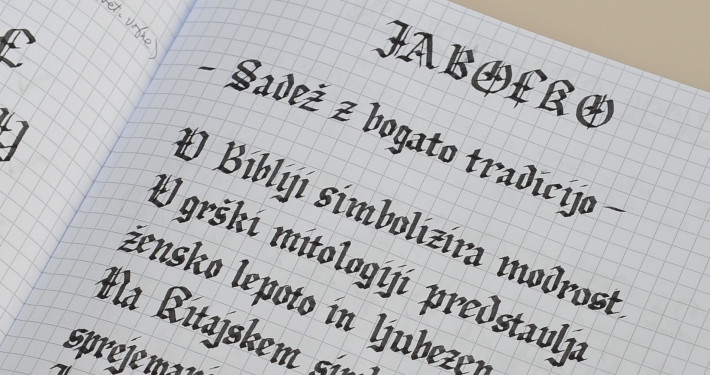 JABOLKO
- Sadež z bogato tradicijo -
V Bibliji simbolizira modrost.
V grški mitologiji predstavlja
žensko lepoto in ljubezen
Na Kitajskem